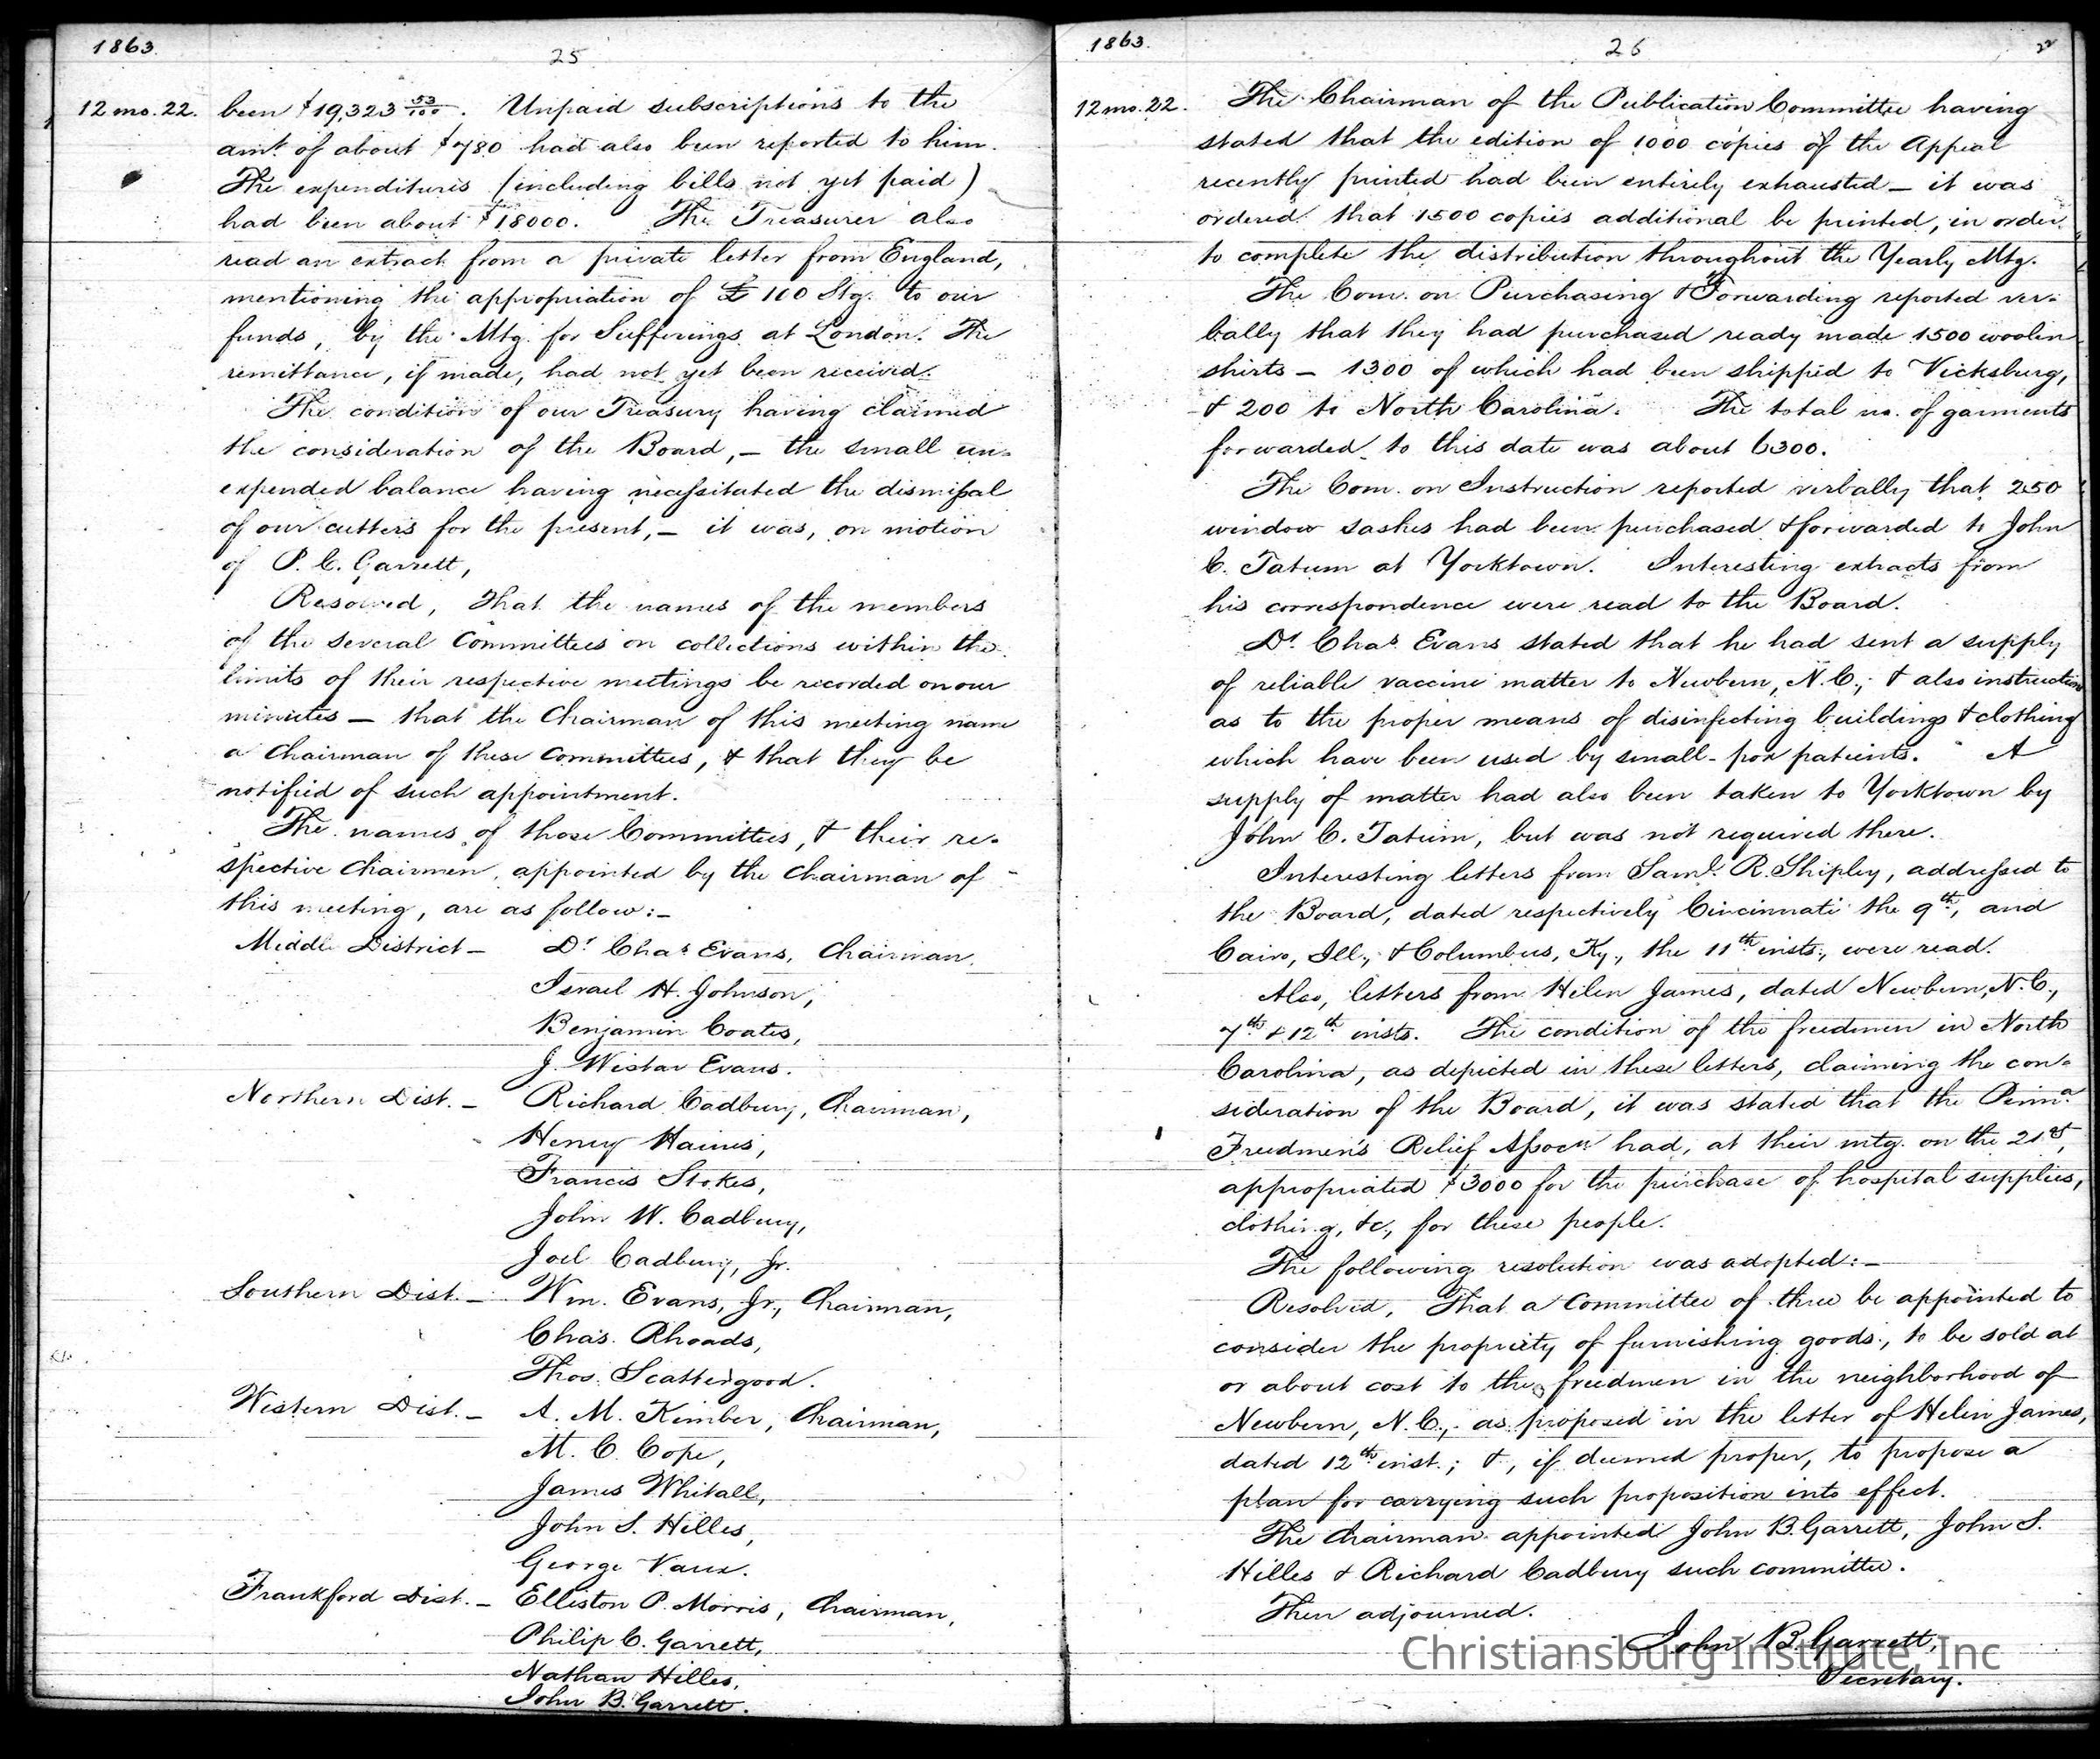 1863.
25
12 mo. 22. been $19,323 53/100. Unpaid subscriptions to the
amt. of about $780 had also been reported to him.
The expenditures (including bills not yet paid)
had been about $18000. The Treasurer also
read an extract from a private letter from England,
mentioning the appropriation of £100 Stg. to our
funds, by the Mtg. for Sufferings at London. The
remittance, if made, had not yet been received.
The condition of our Treasury having claimed
the consideration of the Board, – the small un-
expended balance having necessitated the dismissal
of our cutters for the present, – it was, on motion
of P. C. Garrett,
Resolved, That the names of the members
of the several Committees on collections within the
limits of their respective meetings be recorded on our
minutes – that the Chairman of this meeting name
a Chairman of these Committees, & that they be
notified of such appointment.
The names of those Committees, & their re-
spective Chairmen, appointed by the Chairman of
this meeting, are as follow:–
Middle District – Dr. Chas Evans, Chairman,
Israel H. Johnson,
Benjamin Coates,
J. Wistar Evans.
Northern Dist. – Richard Cadbury, Chairman,
Henry Haines,
Francis Stokes,
John W. Cadbury,
Joel Cadbury, Jr.
Southern Dist. – Wm. Evans, Jr., Chairman,
Chas. Rhoads,
Thos. Scattergood.
Western Dist. – A. M. Kimber, Chairman,
M. C. Cope,
James Whitall,
John S. Hilles,
George Vaux.
Frankford Dist. – Elliston P. Morris, Chairman,
Philip C. Garrett,
Nathan Hilles,
John B. Garrett.
1863.
26
12 mo. 22. The Chairman of the Publication Committee having
stated that the edition of 1000 copies of the Appeal
recently printed had been entirely exhausted – it was
ordered that 1500 copies additional be printed, in order
to complete the distribution throughout the Yearly Mtg.
The Com. on Purchasing & Forwarding reported ver-
bally that they had purchased ready made 1500 woolen
shirts – 1300 of which had been shipped to Vicksburg,
& 200 to North Carolina. The total no. of garments
forwarded to this date was about 6300.
The Com. on Instruction reported verbally that 250
window sashes had been purchased & forwarded to John
C. Tatum at Yorktown. Interesting extracts from
his correspondence were read to the Board.
Dr. Chas Evans stated that he had sent a supply
of reliable vaccine matter to Newbern, N.C.; & also instruction
as to the proper means of disinfecting buildings & clothing
which have been used by small-pox patients. A
supply of matter had also been taken to Yorktown by
John C. Tatum, but was not required there.
Interesting letters from Saml. R. Shipley, addressed to
the Board, dated respectively Cincinnati the 9th, and
Cairo, Ill., & Columbus, Ky., the 11th insts., were read.
Also, letters from Helen James, dated Newbern, N.C.,
7th & 12th insts. The condition of the freedmen in North
Carolina, as depicted in these letters, claiming the con-
sideration of the Board, it was stated that the Penna.
Freedmen's Relief Assocn had, at their mtg. on the 21st,
appropriated $3000 for the purchase of hospital supplies,
clothing, &c, for these people.
The following resolution was adopted:–
Resolved, That a Committee of three be appointed to
consider the propriety of furnishing goods, to be sold at
or about cost to the freedmen in the neighborhood of
Newbern, N.C., as proposed in the letter of Helen James,
dated 12th inst.; &, if deemed proper, to propose a
plan for carrying such proposition into effect.
The Chairman appointed John B. Garrett, John S.
Hilles & Richard Cadbury such committee.
Then adjourned.
John B. Garrett,
Secretary.
Christiansburg Institute, Inc